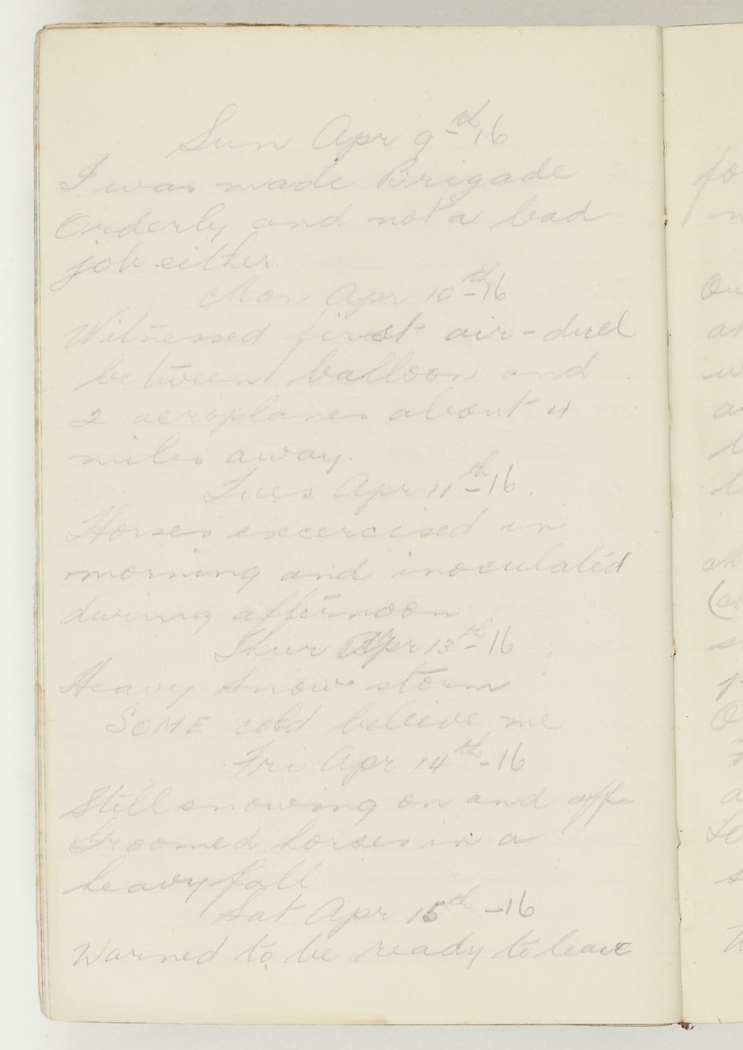 Sun Apr 9th-16
I was made Brigade
Orderly and not a bad
job either
Mon Apr 10th-16
Witnessed first air-duel
between balloon and
2 aeroplanes about 4
miles away.
Tues Apr 11th-16.
Horses excercised in
morning and inoculated
during afternoon
Thur Apr 13th-16
Heavy snow storm
SOME cold believe me
Fri Apr 14th-16
Still snowing on and off.
Groomed horses in a
heavy fall
Sat Apr 15th-16
Warned to be ready to leave